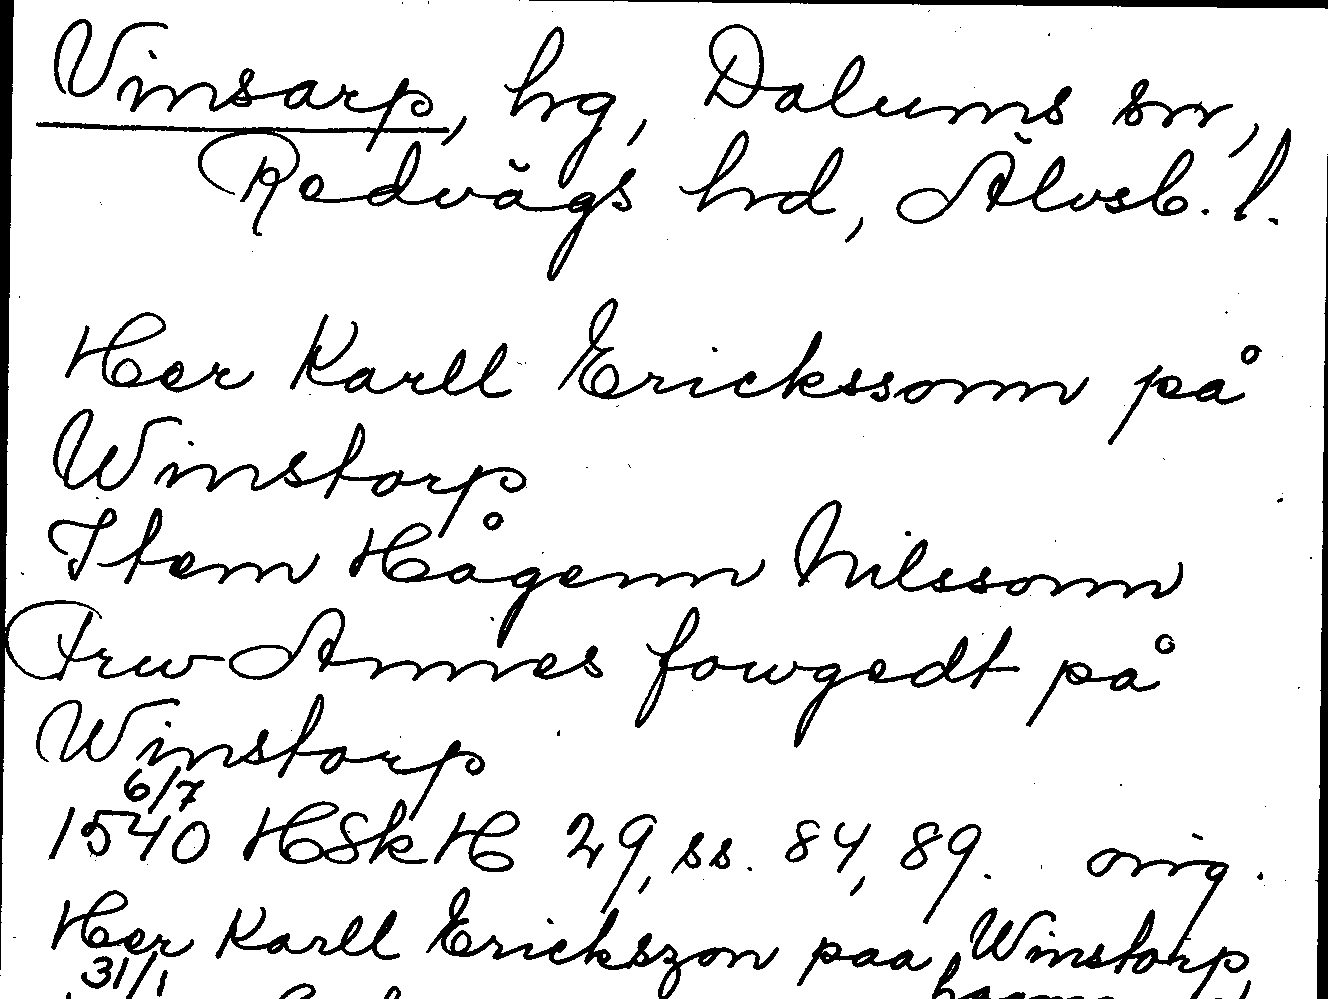 Vinsarp, hg, Dalums sn,
Redvägs hd, Älvsb. l.
Her Karll Erickssonn på
Winstorp
Item Hågenn Nilssonn
Frw Annes fowgedt på
Winstorp
6/7
1540 HSkH 29, ss. 84, 89. orig.
Her Karll Erickszon paa Winstorp,
31/1